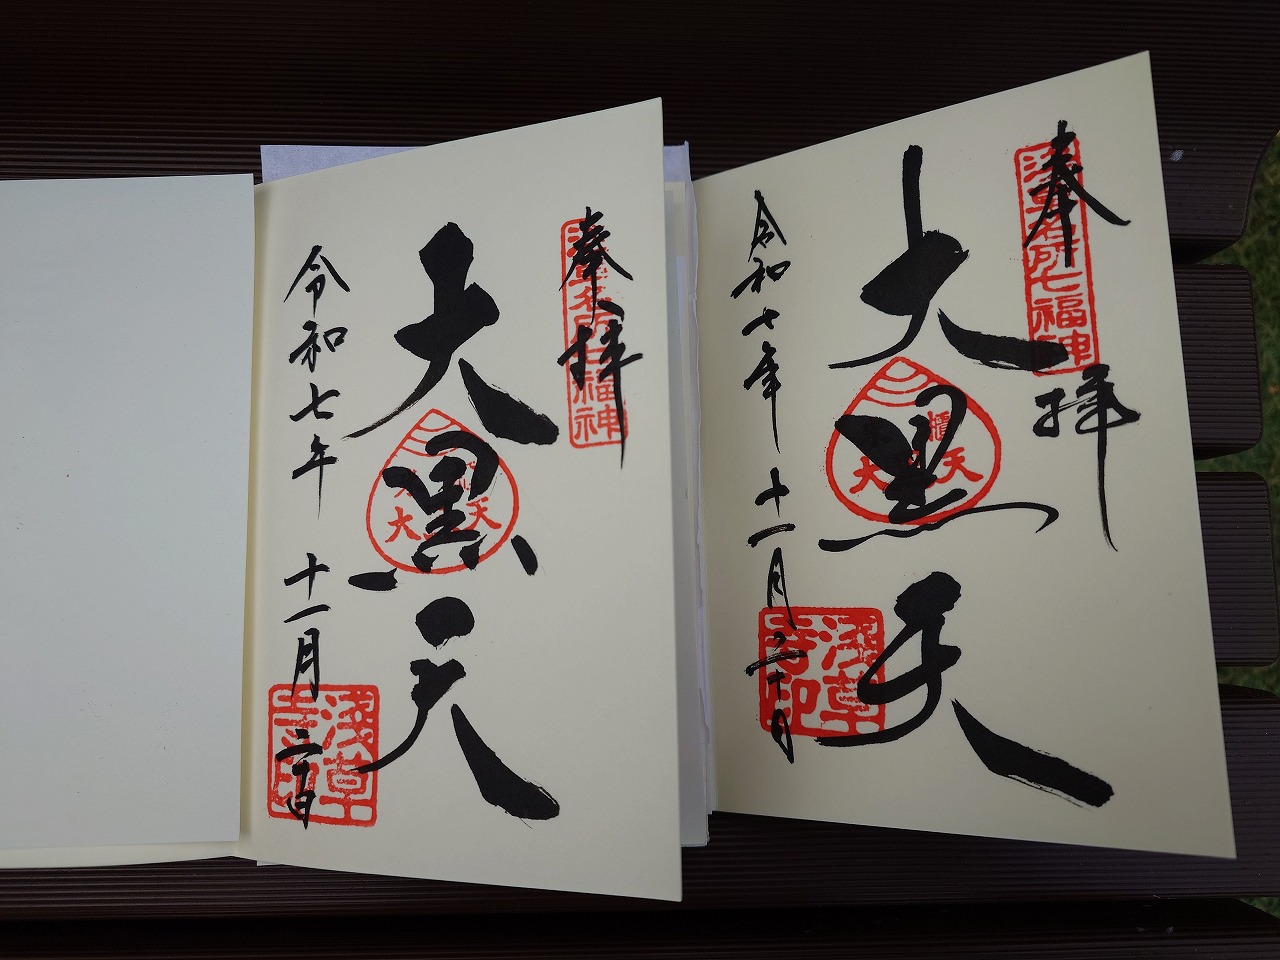 奉拝
浅草名所七福神
大黒天
令和七年 十一月二十日
淺草寺印
奉拝
浅草名所七福神
大黒天
令和七年 十一月二十日
淺草寺印